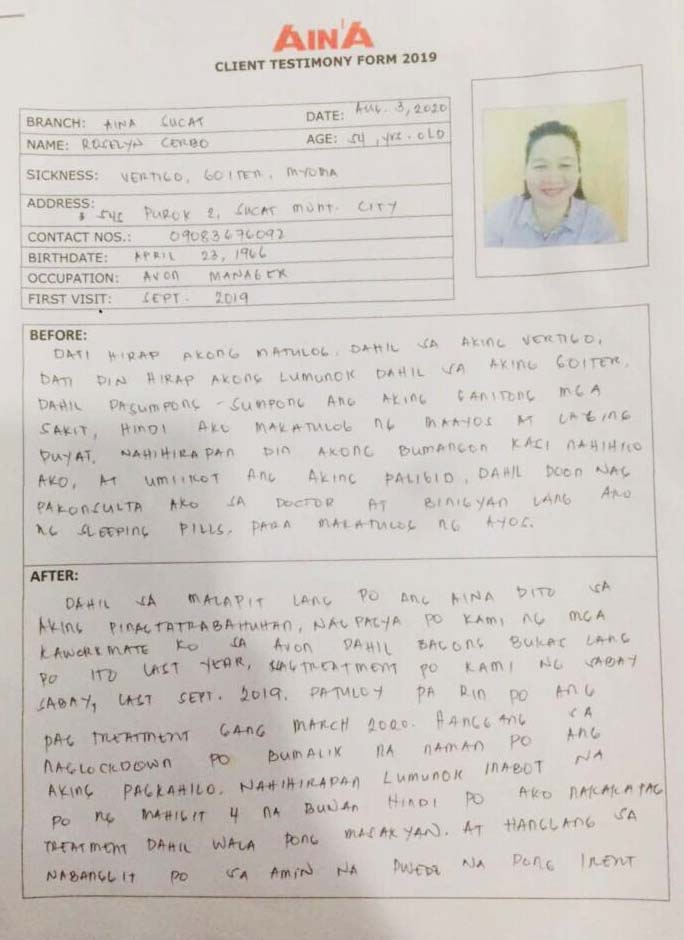 AIN'A
CLIENT TESTIMONY FORM 2019
BRANCH: AINA SUCAT DATE: AUG. 3, 2020
NAME: ROSELYN CERBO AGE: 54 , yrs. OLD
SICKNESS: VERTIGO, GOITER, MYOMA
ADDRESS: # 545 PUROK 2, SUCAT MUNT. CITY
CONTACT NOS.: 09083676092
BIRTHDATE: APRIL 23, 1966
OCCUPATION: AVON MANAGER
FIRST VISIT: SEPT. 2019
BEFORE:
DATI HIRAP AKONG MATULOG. DAHIL SA AKING VERTIGO,
DATI DIN HIRAP AKONG LUMUNOK DAHIL SA AKING GOITER.
DAHIL PASUMPONG - SUMPONG ANG AKING GANITONG MGA
SAKIT, HINDI AKO MAKATULOG NG MAAYOS AT LAGING
PUYAT, NAHIHIRAPAN DIN AKONG BUMANGON KASI NAHIHILO
AKO, AT UMIIKOT ANG AKING PALIGID, DAHIL DOON NAG
PAKONSULTA AKO SA DOCTOR AT BINIGYAN LANG AKO
NG SLEEPING PILLS, PARA MAKATULOG NG AYOS.
AFTER:
DAHIL SA MALAPIT LANG PO ANG AINA DITO SA
AKING PINAGTATRABAHUHAN, NAGPASYA PO KAMI NG MGA
KAWORKMATE KO SA AVON DAHIL BAGONG BUKAS LANG
PO ITO LAST YEAR, NAGTREATMENT PO KAMI NG SABAY
SABAY, LAST SEPT. 2019. PATULOY PA RIN PO ANG
PAG TREATMENT GANG MARCH 2020. HANGGANG SA
NAGLOCKDOWN PO BUMALIK NA NAMAN PO ANG
AKING PAGKAHILO. NAHIHIRAPAN LUMUNOK INABOT NA
PO NG MAHIGIT 4 NA BUNAN HINDI PO AKO NAKAKAPAG
TREATMENT DAHIL WALA PONG MASAKYAN. AT HANGGANG SA
NABANGGIT PO SA AMIN NA PWEDE NA PONG IRENT